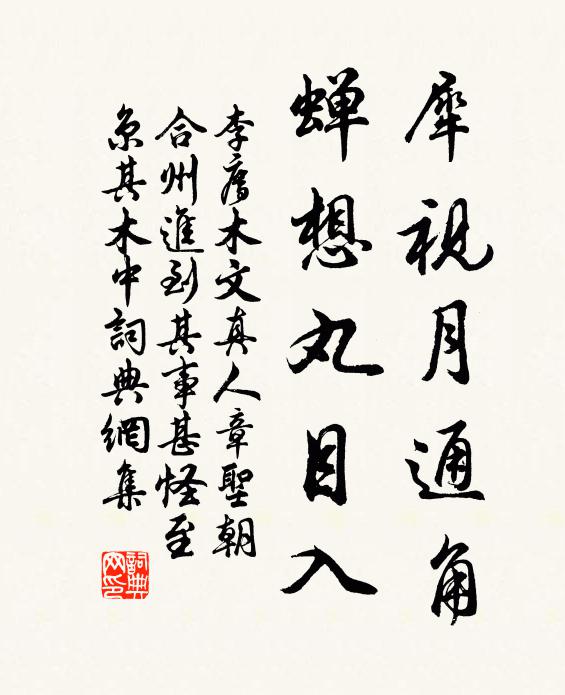 犀視月通角
蟬想丸目入
李廌木文真人章聖朝
合州進到其事甚怪至
京其木中詞典網集
詞典
网印